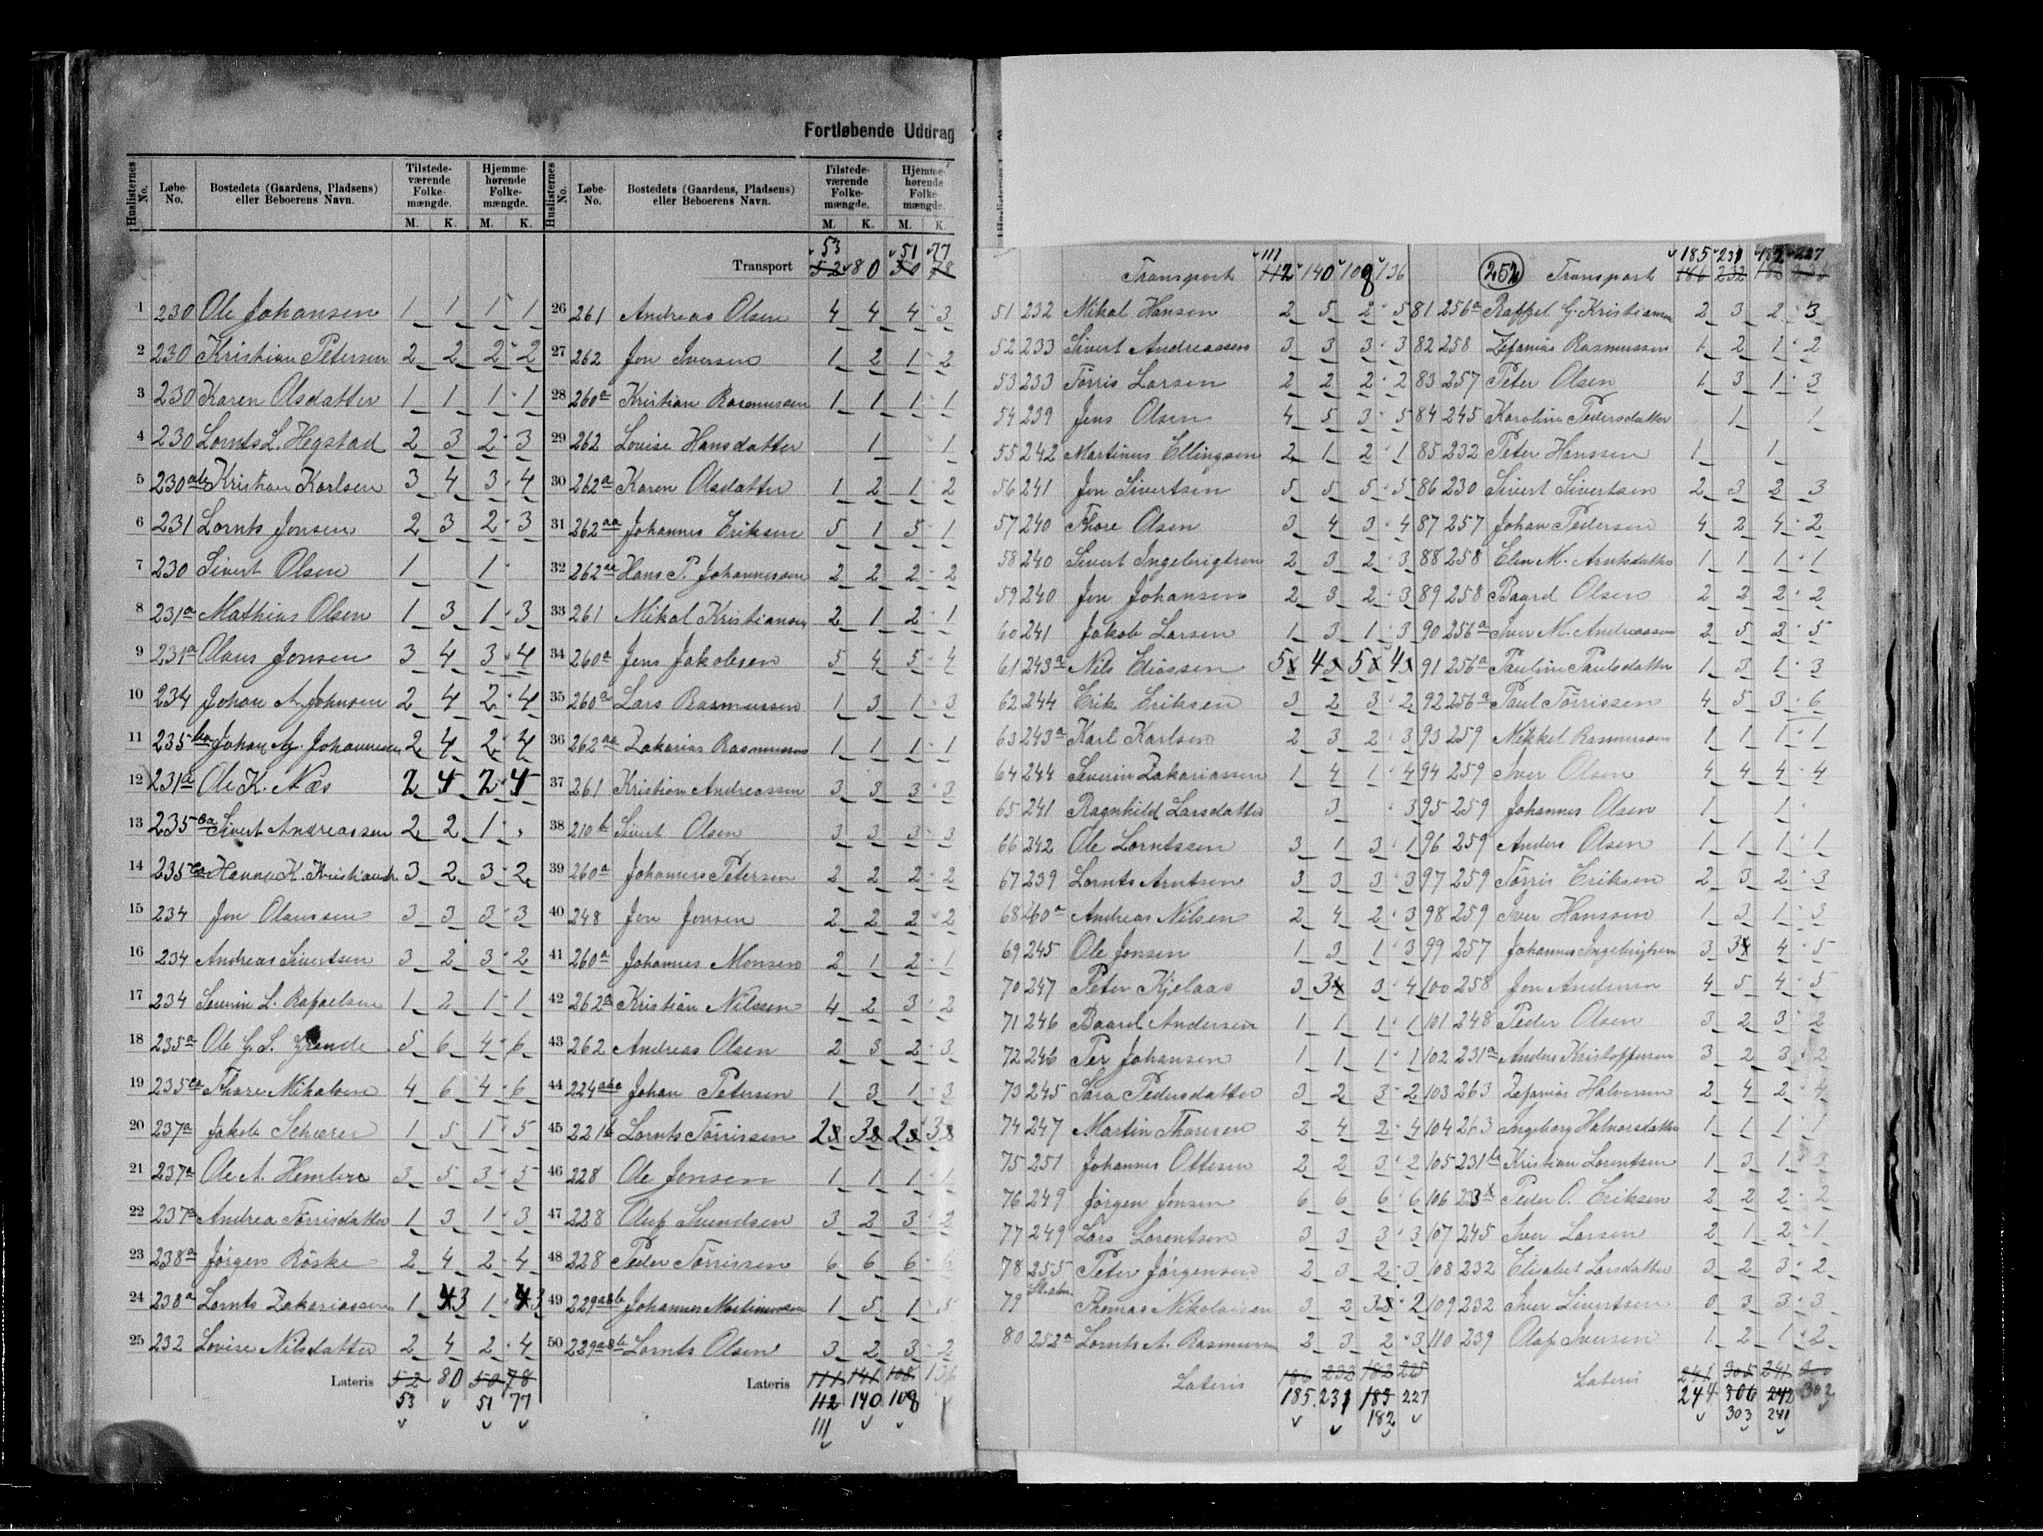 Fortløbende Uddrag
Huslisternes No. Løbe-No. Bostedets (Gaardens, Pladsens) eller Beboerens Navn. Tilstedeværende Folkemængde. M. K. Hjemmehørende Folkemængde. M. K.
1 230 Ole Johansen 1 1 1 1
2 230 Kristian Petersen 2 2 2 2
3 230 Karen Olsdatter 1 1 1 1
4 230 Lornts L. Hegstad 2 3 2 3
5 230 Kristian Karlsen 3 4 3 4
6 231 Lornts Jonsen 2 3 2 3
7 230 Sivert Olsen 1 1
8 231a Mathias Olsen 1 3 1 3
9 231a Olaus Jonsen 3 4 3 4
10 234 Johan A. Johnsen 2 4 2 4
11 235 Johan Johannesen 2 4 2 4
12 231a Ole K. Næs 2 4 2 4
13 235 Sivert Andreassen 2 2 1
14 235 Hanna K. Kristiansdr 3 2 3 2
15 234 Jon Olaussen 3 3 3 3
16 234 Andreas Sivertsen 3 2 3 2
17 234 Severin L. Rafaelsen 1 2 1 1
18 235a Ole G. S. Grande 5 6 4 6
19 235 Thore Mikalsen 4 6 4 6
20 237a Jakob Scherer 1 5 1 5
21 237a Ole A. Hembre 3 5 3 5
22 237a Andrea Tørrisdatter 1 3 1 3
23 238a Jørgen Röske 2 4 2 4
24 238a Lornts Zakariassen 1 3 1 3
25 232 Lovise Nilsdatter 2 4 2 4
Lateris 52 80 50 78
53 51 77
Huslisternes No. Løbe-No. Bostedets (Gaardens, Pladsens) eller Beboerens Navn. Tilstedeværende Folkemængde. M. K. Hjemmehørende Folkemængde. M. K.
53 51 77
Transport 52 80 50 78
26 261 Andreas Olsen 4 4 4 3
27 262 Jon Iversen 1 2 1 2
28 260a Kristian Rasmussen 1 1 1 1
29 262 Lovise Hansdatter 1 1
30 262a Karen Olsdatter 1 2 1 2
31 262aa Johannes Eriksen 5 1 5 1
32 262 Hans P. Johannessen 2 2 2 2
33 261 Mikal Kristiansen 2 1 2 1
34 260a Jens Jakobsen 5 4 5 4
35 260a Lars Rasmussen 1 3 1 3
36 262aa Zakarias Rasmussen 1 1 1 1
37 261 Kristian Andreassen 3 3 3 3
38 210b Sivert Olsen 3 3 3 3
39 260a Johannes Petersen 2 2 2 2
40 248 Jon Jonsen 2 2 2 2
41 260a Johannes Monsen 2 1 2 1
42 262a Kristian Nilssen 4 2 3 2
43 262 Andreas Olsen 2 3 2 3
44 224 Johan Petersen 1 3 1 3
45 221b Lornts Tørrissen 2 3 2 3
46 228 Ole Jonsen 1 1 1 1
47 228 Oluf Svendsen 3 2 3 2
48 228 Peder Tørrissen 6 6 6 6
49 229 Johannes Martinussen 1 5 1 5
50 229 Lornts Olsen 3 2 3 2
Lateris 111 141 108 136
112 140 108
111
111
Transport 112 140 108 136
51 232 Mikal Hansen 2 5 2 5
52 233 Sivert Andreassen 3 3 3 3
53 233 Tørris Larsen 2 2 2 2
54 239 Jens Olsen 4 5 3 5
55 242 Martinus Ellingsen 2 1 2 1
56 241 Jon Sivertsen 5 5 5 5
57 240 Thore Olsen 3 4 3 4
58 240 Sivert Ingebrigtsen 2 3 2 3
59 240 Jon Johansen 2 3 2 3
60 241 Jakob Larsen 1 3 1 3
61 243a Nils Eliassen 5 4 5 4
62 244 Erik Eriksen 3 2 3 2
63 243a Karl Karlsen 2 3 2 3
64 244 Severin Zakariassen 1 4 1 4
65 241 Ragnhild Larsdatter 3 3
66 242 Ole Lorntssen 3 1 3 1
67 239 Lornts Arntsen 3 3 3 3
68 260a Andreas Nilsen 2 4 2 3
69 245 Ole Jonsen 1 3 1 3
70 247 Peter Kjelaas 3 3 3 4
71 246 Baard Andersen 1 1 1 1
72 246 Per Johansen 1 1 1 1
73 245 Sara Pedersdatter 3 2 3 2
74 247 Martin Thoresen 2 4 2 4
75 251 Johannes Ottesen 2 2 3 2
76 249 Jørgen Jonsen 6 6 6 6
77 249 Lars Lorentsen 3 3 3 3
78 255 Peter Jørgensen 2 3 2 3
79 Thomas Nikolaisen 3 2 3 2
80 252a Lornts A. Rasmussen 2 3 2 3
Lateris 186 232 182 225
185 231 183 227
182
185 231 182 227
252 Transport 186 232
81 256a Raffel G. Kristiansen 2 3 2 3
82 258 Zefanias Rasmussen 1 2 1 2
83 257 Peter Olsen 1 3 1 3
84 245 Karoline Pedersdatter 1 1
85 232 Peter Hanssen 1 1
86 230 Sivert Sivertsen 2 3 2 3
87 257 Johan Pedersen 4 2 4 2
88 258 Elen M. Arntsdatter 1 1 1 1
89 258 Baard Olsen 2 2 2 2
90 256a Iver M. Andreassen 2 5 2 5
91 256a Pauline Paulsdatter 1 3 1 3
92 256a Paul Tørrissen 4 5 3 6
93 259 Mikkel Rasmussen 1 1 1 1
94 259 Iver Olsen 4 4 4 4
95 259 Johannes Olsen 1 1
96 259 Anders Olsen 1 1 1 1
97 259 Tørris Eriksen 2 3 2 3
98 259 Iver Hanssen 1 3 1 3
99 257 Johannes Ingebrigtsen 3 3 4 5
100 258 Jon Andersen 4 5 4 5
101 248 Peder Olsen 3 2 3 2
102 231a Anders Kristoffersen 3 2 3 2
103 263 Zefanias Halvorsen 2 4 2 4
104 263 Ingeborg Halvorsdatter 1 1 1 1
105 231b Kristian Lorentsen 1 3 1 3
106 233 Peder O. Eriksen 2 2 2 2
107 245 Iver Larsen 2 1 2 1
108 232 Elisabet Larsdatter 3 2 3 2
109 232 Iver Sivertsen 0 3 3 3
110 239 Olaf Iversen 1 2 1 2
Lateris 241 305 241 300
244 306 242 302
303 241